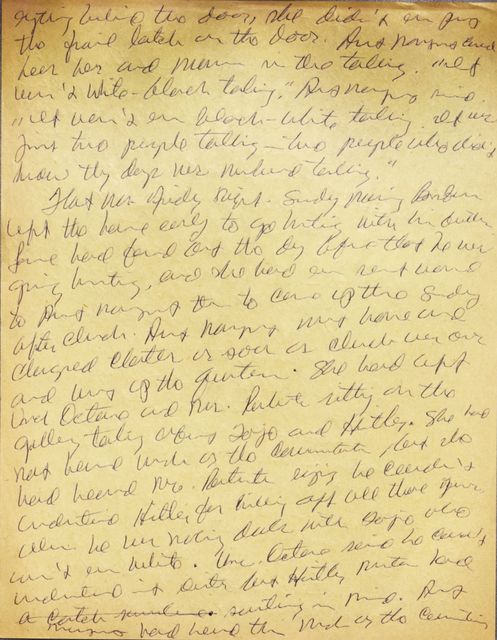 sitting behind the door, she didn't even put
the frail latch on the door. Aunt Margaret could
hear her and Marcus in there talking. "It
wasn't white-black talking," Aunt Margaret said.
"It wasn't even black-white talking. It was
just two people talking — two people who didn't
know they days was numbered talking."
That was Friday night. Sunday morning Bonbon
left the house early to go hunting with his brothers.
had found out the day before that he was
going hunting, and she had even sent word
to Aunt Margaret then to come up there Sunday
after church. Aunt Margaret went home and
changed clothes as soon as church was over
and went up the quarters. She had left
Uncle Octave and Mr. sitting on the
gallery talking about Tojo and Hitler. She had
not heard much of the conversation, but she
had heard Mr. saying he couldn't
understand Hitler for killing off all those
when he was making deals with Tojo who
wasn't even white. Uncle Octave said he couldn't
understand it either but Hitler must have had
a something in mind. Aunt
Margaret had heard this much of the